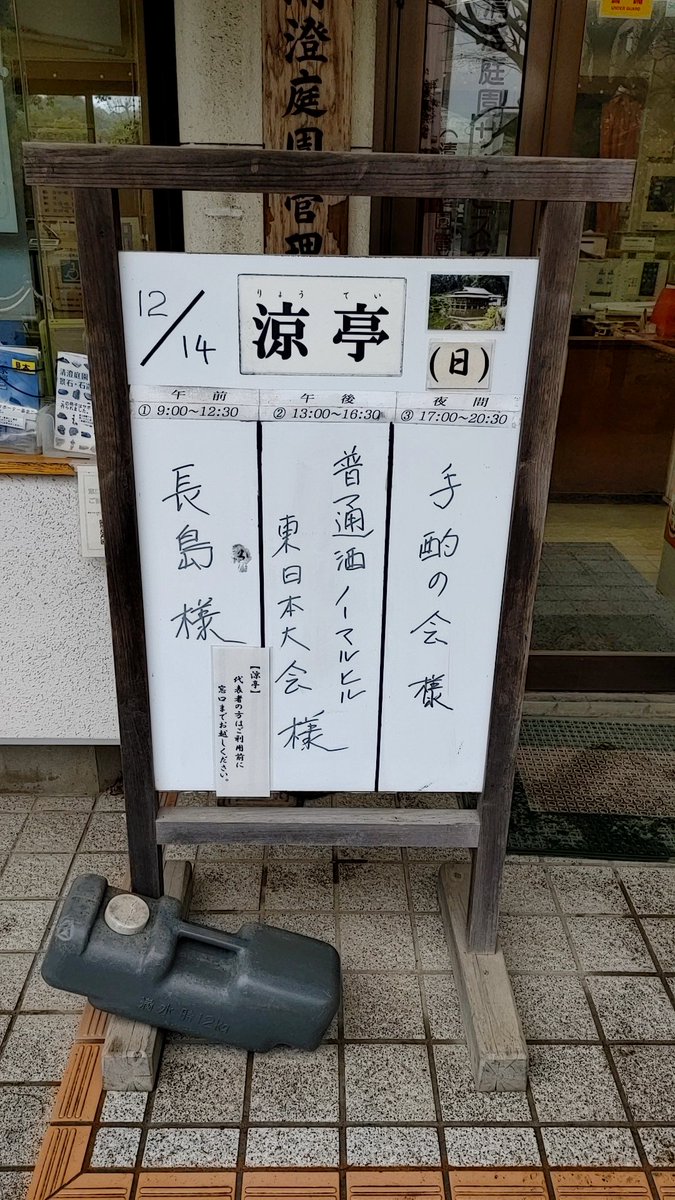 澄庭園管理
12/14
りょうてい
涼亭
(日)
午前
① 9:00~12:30
午後
② 13:00~16:30
夜間
③ 17:00~20:30
長島様
普通酒ノーマルヒル
東日本大会様
手酌の会様
【涼亭】
代表者の方はご利用前に
窓口までお越しください。
清澄庭園
満水時12kg